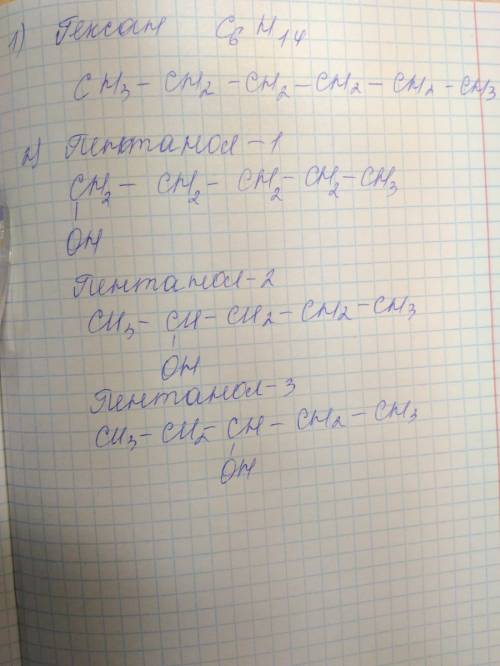 1) Гексан C6H14
CH3 – CH2 – CH2 – CH2 – CH2 – CH3
2) Пентанол – 1
CH2 – CH2 – CH2 – CH2 – CH3
OH
Пентанол-2
CH3 – CH – CH2 – CH2 – CH3
OH
Пентанол-3
CH3 – CH2 – CH – CH2 – CH3
OH